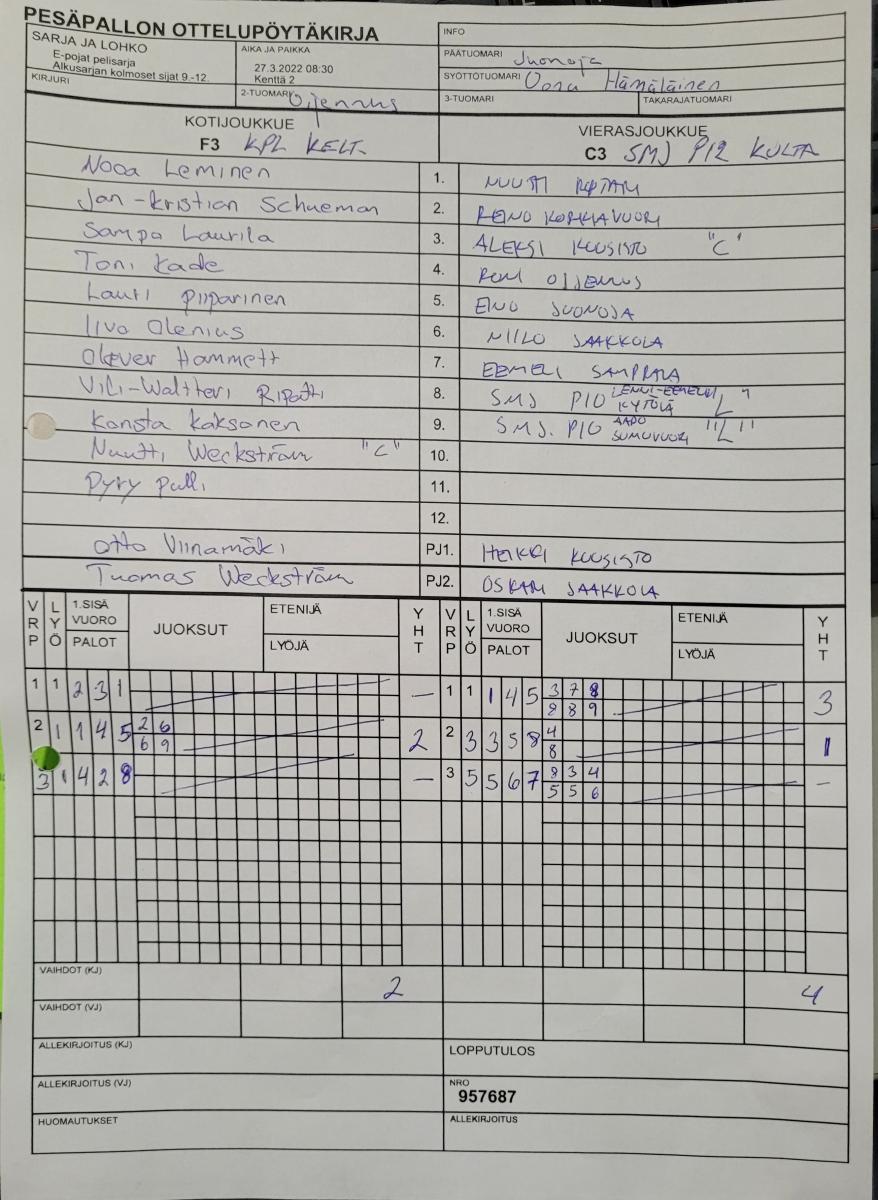 PESÄPALLON OTTELUPÖYTÄKIRJA
INFO
SARJA JA LOHKO
E-pojat pelisarja
Alkusarjan kolmoset sijat 9.-12.
AIKA JA PAIKKA
27.3.2022 08:30
Kenttä 2
PÄÄTUOMARI Juonoja
SYÖTTÖTUOMARI Oona Hämäläinen
KIRJURI
2-TUOMARI Oijennus
3-TUOMARI
TAKARAJATUOMARI
KOTIJOUKKUE
F3 KPL KELT.
VIERASJOUKKUE
C3 SMJ P12 KULTA
Nooa Leminen 1. NUUTTI
Jan-Kristian Schueman 2. REINO KORKIAVUORI
Sampo Laurila 3. ALEKSI KUUSISTO "C"
Toni Kade 4. RONI OIJENNUS
Lauri Piiparinen 5. EINO JUONOJA
Iivo Olenius 6. NIILO JAAKKOLA
Oliver Hammett 7. EEMELI SAMPPALA
Vili-Waltteri Ripatti 8. SMJ P10 LENNI-EEMELI KYTÖLÄ "L"
Konsta Kaksonen 9. SMJ. P10 AAPO SUMUVUORI "L"
Nuutti Weckström "C" 10.
Pyry Palli 11.
12.
Otto Viinamäki PJ1. HEIKKI KUUSISTO
Tuomas Weckström PJ2. OSKARI JAAKKOLA
VRP LYÖ 1.SISÄ VUORO PALOT JUOKSUT ETENIJÄ LYÖJÄ YHT VRP LYÖ 1.SISÄ VUORO PALOT JUOKSUT ETENIJÄ LYÖJÄ YHT
1 1 2 3 1 — 1 1 1 4 5 3 7 8 3
8 8 9
2 1 1 4 5 2 6 2 2 3 3 5 8 4 1
6 9 8
3 1 4 2 8 — 3 5 5 6 7 8 3 4 —
5 5 6
VAIHDOT (KJ) 2 4
VAIHDOT (VJ)
ALLEKIRJOITUS (KJ)
LOPPUTULOS
ALLEKIRJOITUS (VJ)
NRO
957687
HUOMAUTUKSET
ALLEKIRJOITUS